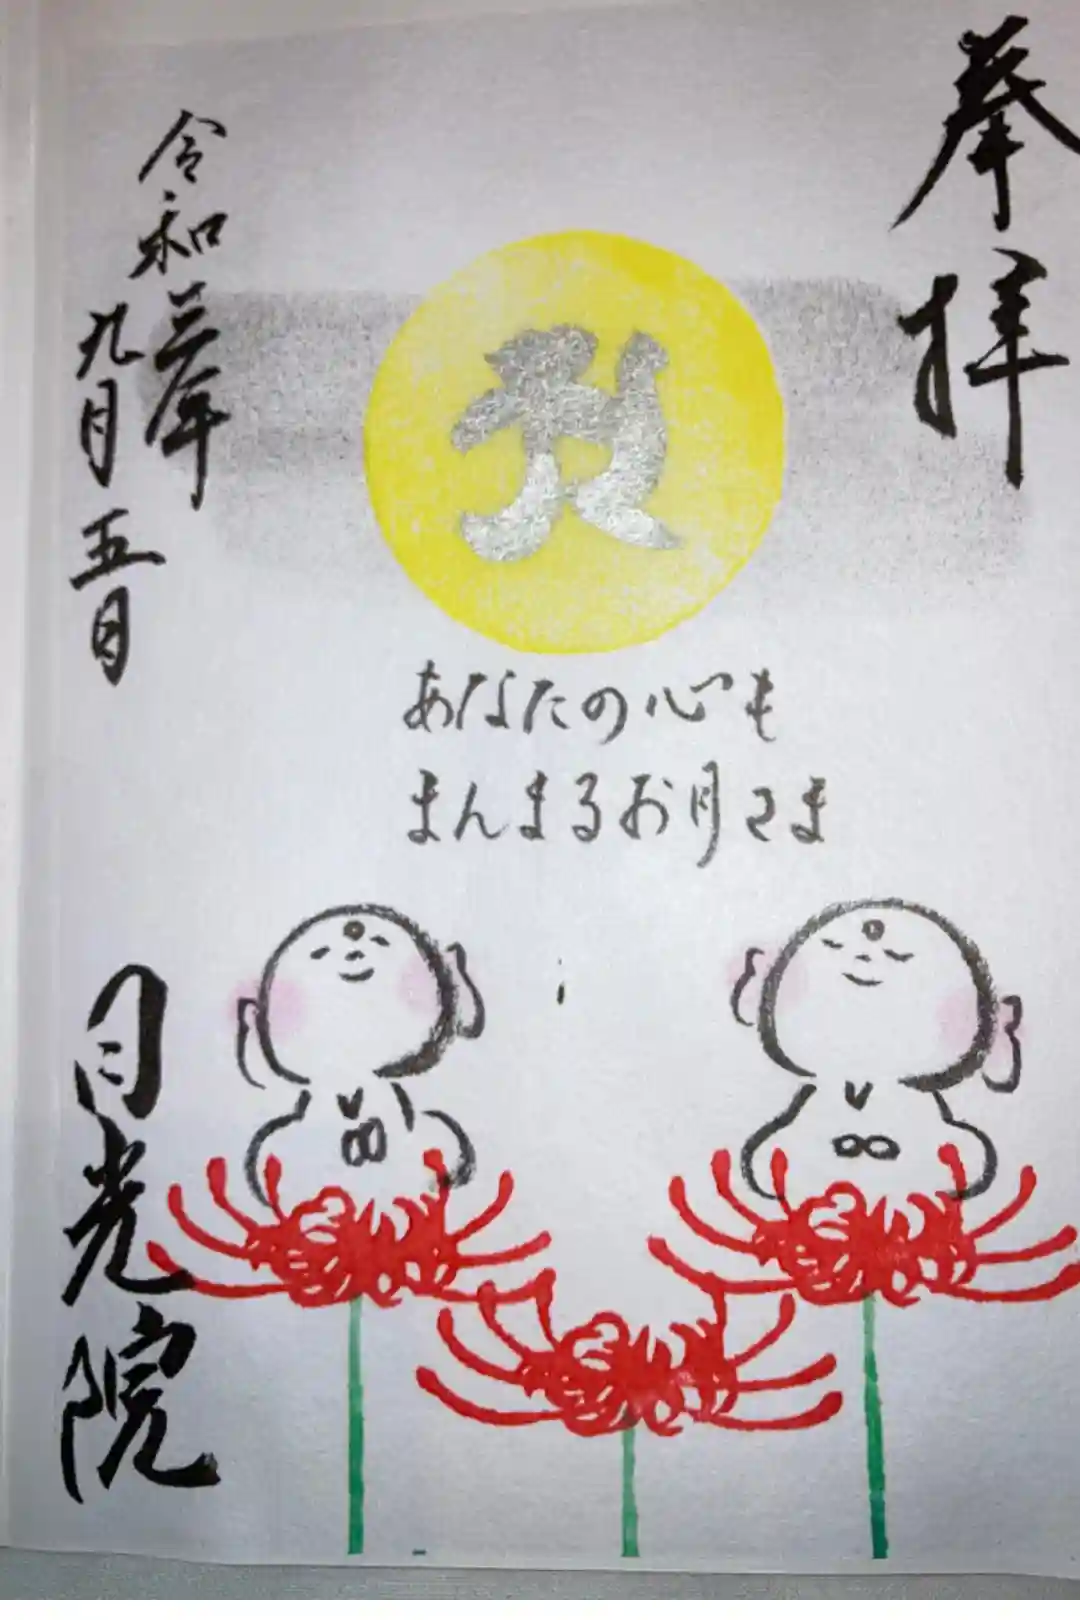 奉拝
あなたの心も
まんまるお月さま
令和三年
九月五日
月光院